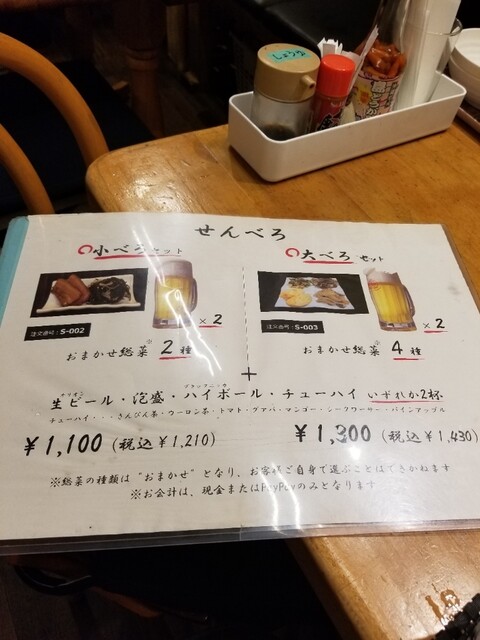 しょうゆ
せんべろ
小べろセット
大べろセット
注文番号：S-002
×2
注文番号：S-003
×2
おまかせ総菜※2種
おまかせ総菜※4種
+
オリオン
ブラックニッカ
生ビール・泡盛・ハイボール・チューハイ いずれか2杯
チューハイ・・・さんぴん茶・ウーロン茶・トマト・グァバ・マンゴー・シークワーサー・パインアップル
¥1,100（税込¥1,210）
¥1,300（税込¥1,430）
※総菜の種類は"おまかせ"となり、お客様ご自身で選ぶことはできかねます
※お会計は、現金またはPayPayのみとなります